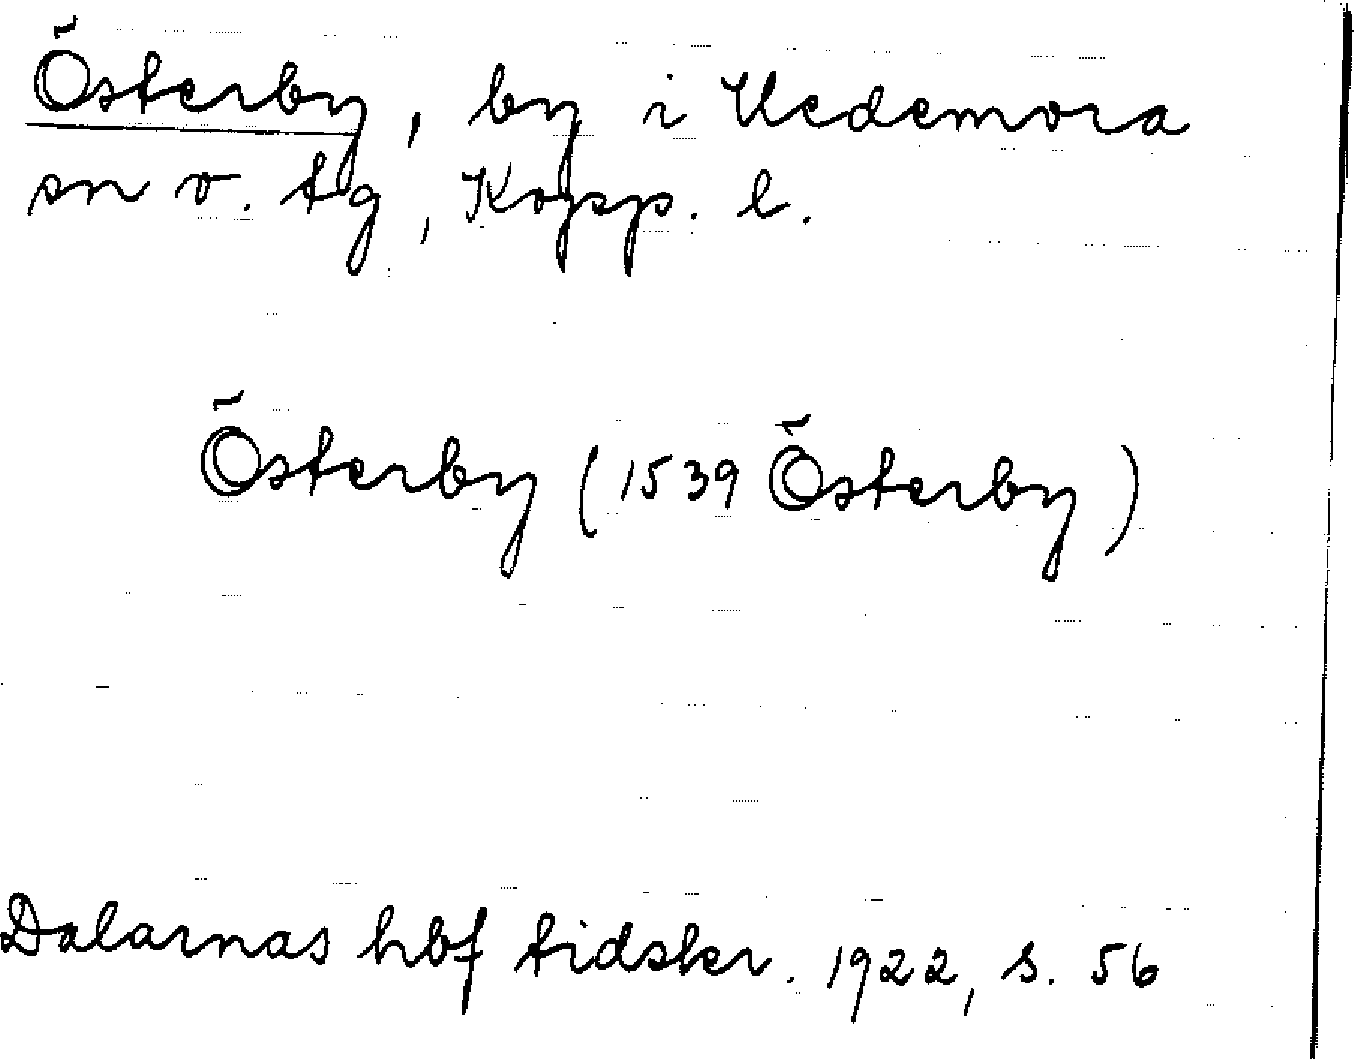 Österby, by i Hedemora
sn o. tg, Kopp. l.
Österby (1539 Österby)
Dalarnas hbf tidskr. 1922, s. 56